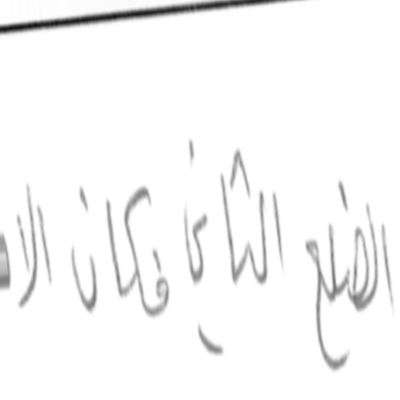 الضلع الثاني فكان الا